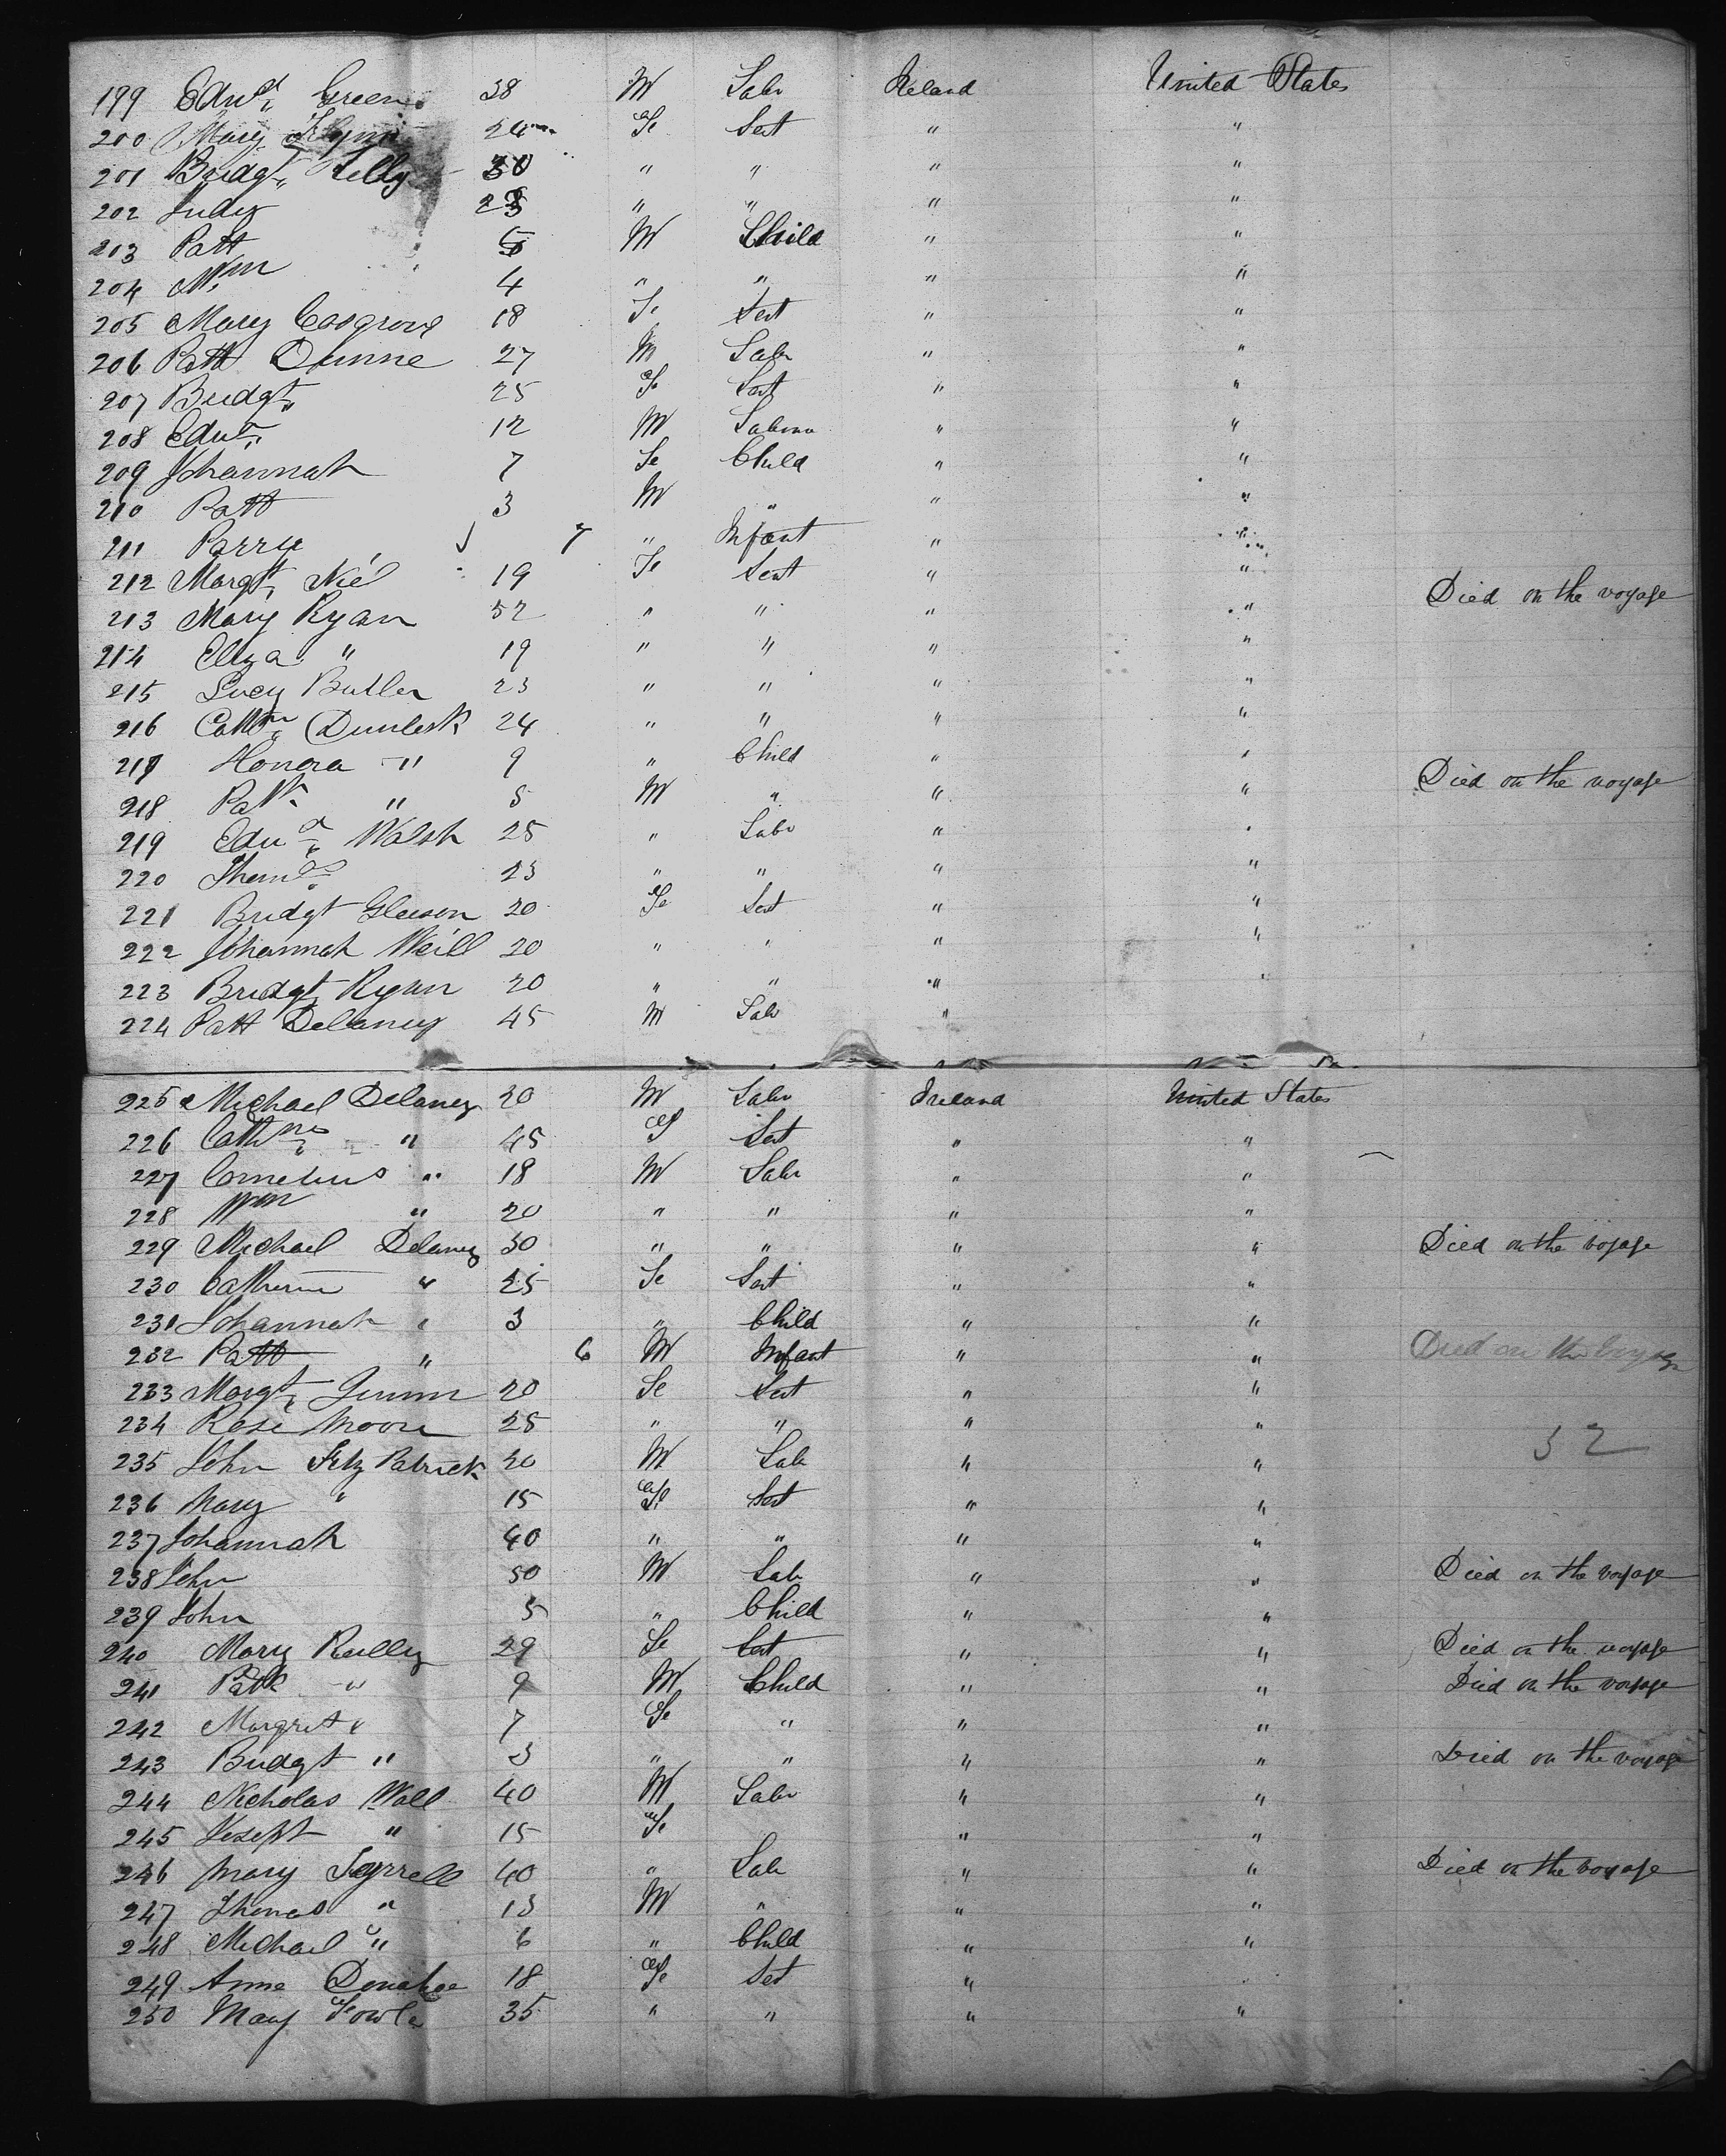 199 Edwd. Green 38 M Labr Ireland United States
200 Mary Flynn 24 Fe Sert " "
201 Bridgt. Kelly 30 " " " "
202 Judy 28 " " " "
203 Patt 5 M Child " "
204 Wm 4 " " " "
205 Mary Cosgrove 18 Fe Sert " "
206 Patt Dunne 27 M Labr " "
207 Bridgt. 25 Fe Sert " "
208 Edwd. 12 M " "
209 Johannah 7 Fe Child " "
210 Patt 3 M " " "
211 7 " Infant " "
212 Margt. Niel 19 Fe Sert " "
213 Mary Ryan 52 " " " " Died on the voyage
214 Eliza " 19 " " " "
215 Lucy Butler 23 " " " "
216 Cathn. 24 " " " "
217 Honora " 9 " Child " "
218 Patk. " 5 M " " " Died on the voyage
219 Edwd. Walsh 25 " Labr " "
220 Thoms. 23 " " " "
221 Bridgt Gleeson 20 Fe Sert " "
222 Johannah Weill 20 " " " "
223 Bridgt. Ryan 20 " " " "
224 Patt Delaney 45 M Labr "
225 Michael Delaney 20 M Labr Ireland United States
226 Cathne. " 45 F Sert " "
227 Cornelius " 18 M Labr " "
228 Wm " 20 " " " "
229 Michael Delaney 30 " " " " Died on the voyage
230 Catherine " 25 Fe Sert " "
231 Johannah " 3 " Child " "
232 Patt " 6 M Infant " " Died on the voyage
233 Margt. 20 Fe Sert " "
234 Rose Moore 25 " " " " 52
235 John Fitz Patrick 20 M Lab " "
236 Mary " 15 Fe Sert " "
237 Johannah 40 " " " "
238 John 50 M Lab " " Died on the voyage
239 John 5 " Child " "
240 Mary Reilly 29 Fe Sert " " Died on the voyage
241 Patk " 9 M Child " " Died on the voyage
242 Margret " 7 Fe " " "
243 Bridgt " 3 " " " " Died on the voyage
244 Nicholas Wall 40 M Labr " "
245 " 15 Fe " "
246 Mary Tyrrell 40 " Lab " " Died on the voyage
247 Thomas " 13 M " " "
248 Michael " 6 " Child " "
249 Anne Donahoe 18 Fe Set "
250 Mary Fowler 35 " " " "